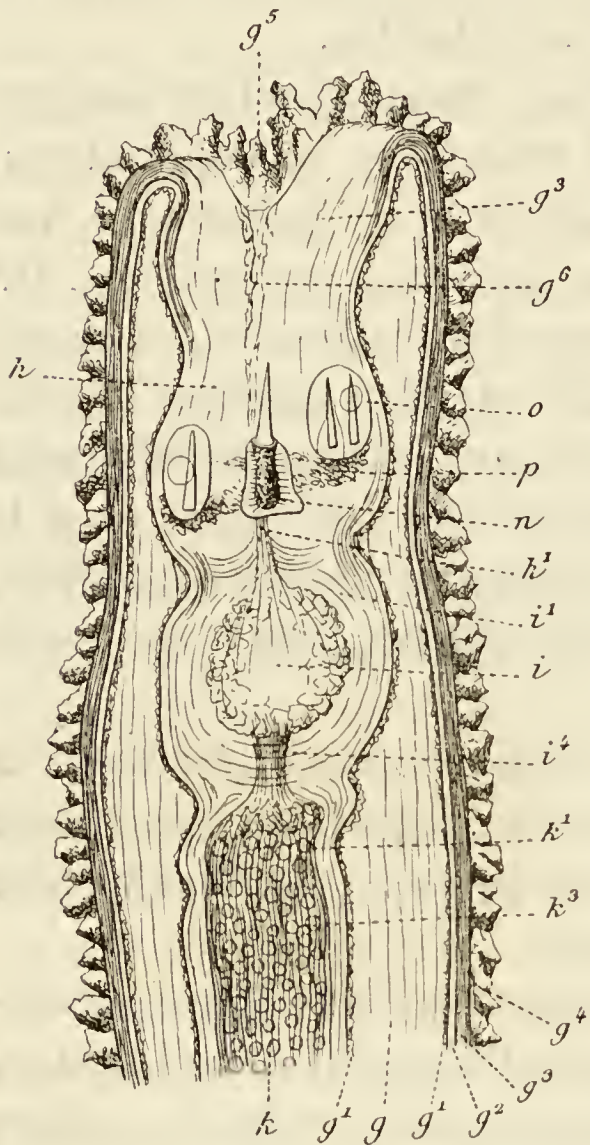 g⁵
g³
g⁶
h
o
p
n
h¹
i¹
i
i⁴
k¹
k³
g⁴
k g¹ g g¹ g² g³